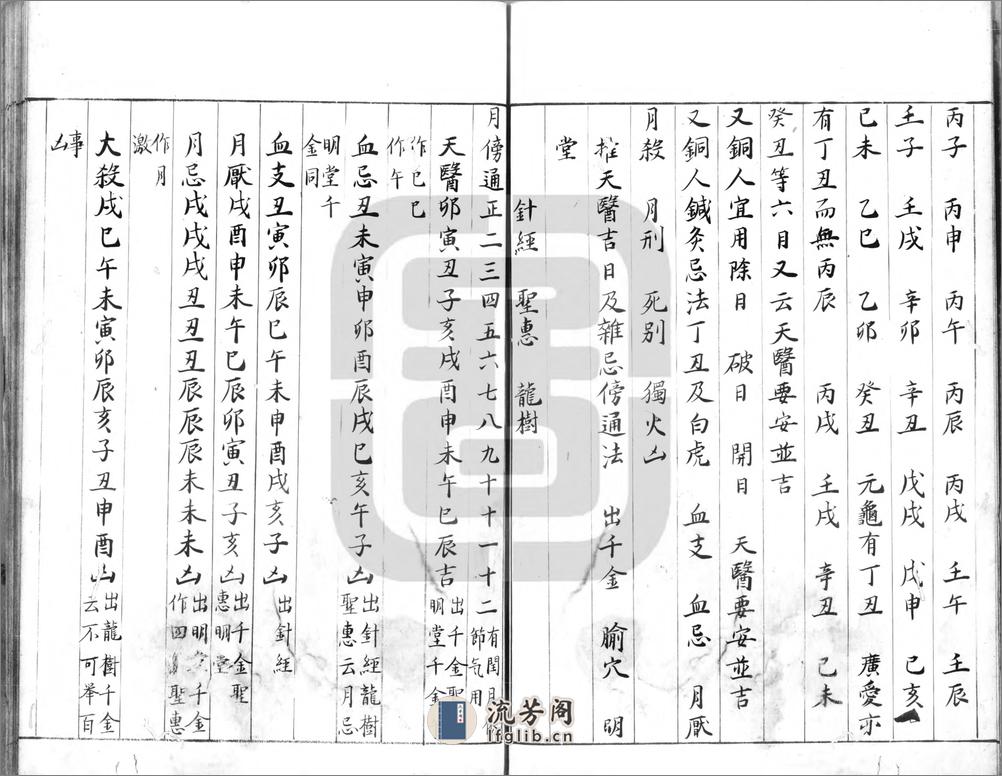 丙子 丙申 丙午 丙辰 丙戌 壬午 壬辰
壬子 壬戌 辛卯 辛丑 戊戌 戊申 己亥
己未 乙巳 乙卯 癸丑 元龜有丁丑 廣愛亦
有丁丑而無丙辰 丙戌 壬戌 辛丑 己未
癸丑等六日又云天醫要安並吉
又銅人宜用除日 破日 開日 天醫要安並吉
又銅人鍼灸忌法丁丑及白虎 血支 血忌 月厭
月殺 月刑 死别 獨火凶
推天醫吉日及雜忌傍通法 出千金 腧穴 明
堂
針經 聖惠 龍樹
月傍通正二三四五六七八九十十一十二有閏月
節氣用
天醫卯寅丑子亥戌酉申未午巳辰吉出千金聖
明堂千金
作巳巳
作午
血忌丑未寅申卯酉辰戌巳亥午子凶出針經龍樹
聖惠云月忌
明堂千
金同
血支丑寅卯辰巳午未申酉戌亥子凶 出針經
月厭戌酉申未午巳辰卯寅丑子亥凶出千金聖
惠明堂
月忌戌戌戌丑丑丑辰辰辰未未未凶出明千金
作四聖惠
作月
激
大殺戌巳午未寅卯辰亥子丑申酉凶出龍樹千金
云不可举百
事
凶
流芳阁
lfglib.cn